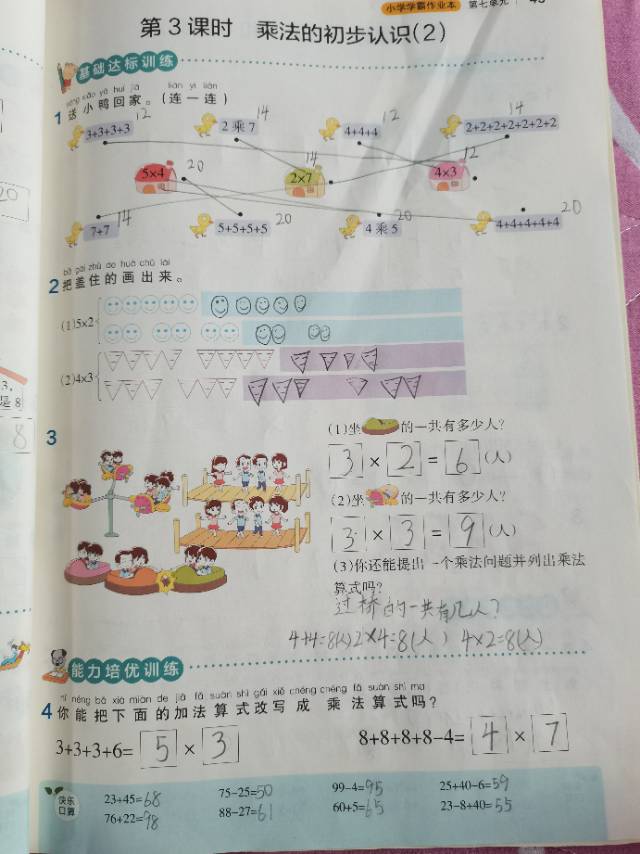 小学学霸作业本 第七单元
第3课时 乘法的初步认识(2)
基础达标训练
sòng xiǎo yā huí jiā lián yi lián
1 送小鸭回家。(连一连)
3+3+3+3 12 2乘7 14 4+4+4 12 2+2+2+2+2+2+2 14
5×4 20 2×7 14 4×3 12
7+7 14 5+5+5+5 20 4乘5 20 4+4+4+4+4 20
bǎ gài zhù de huà chū lái
2 把盖住的画出来。
(1)5×2
(2)4×3
3
(1)坐的一共有多少人?
3×2=6(人)
(2)坐的一共有多少人?
3×3=9(人)
(3)你还能提出一个乘法问题并列出乘法
算式吗?
过桥的一共有几人?
4+4=8(人) 2×4=8(人) 4×2=8(人)
能力培优训练
nǐ néng bǎ xià miàn de jiā fǎ suàn shì gǎi xiě chéng chéng fǎ suàn shì ma
4 你能把下面的加法算式改写成乘法算式吗?
3+3+3+6=5×3 8+8+8+8-4=4×7
快乐口算
23+45=68 75-25=50 99-4=95 25+40-6=59
76+22=98 88-27=61 60+5=65 23-8+40=55